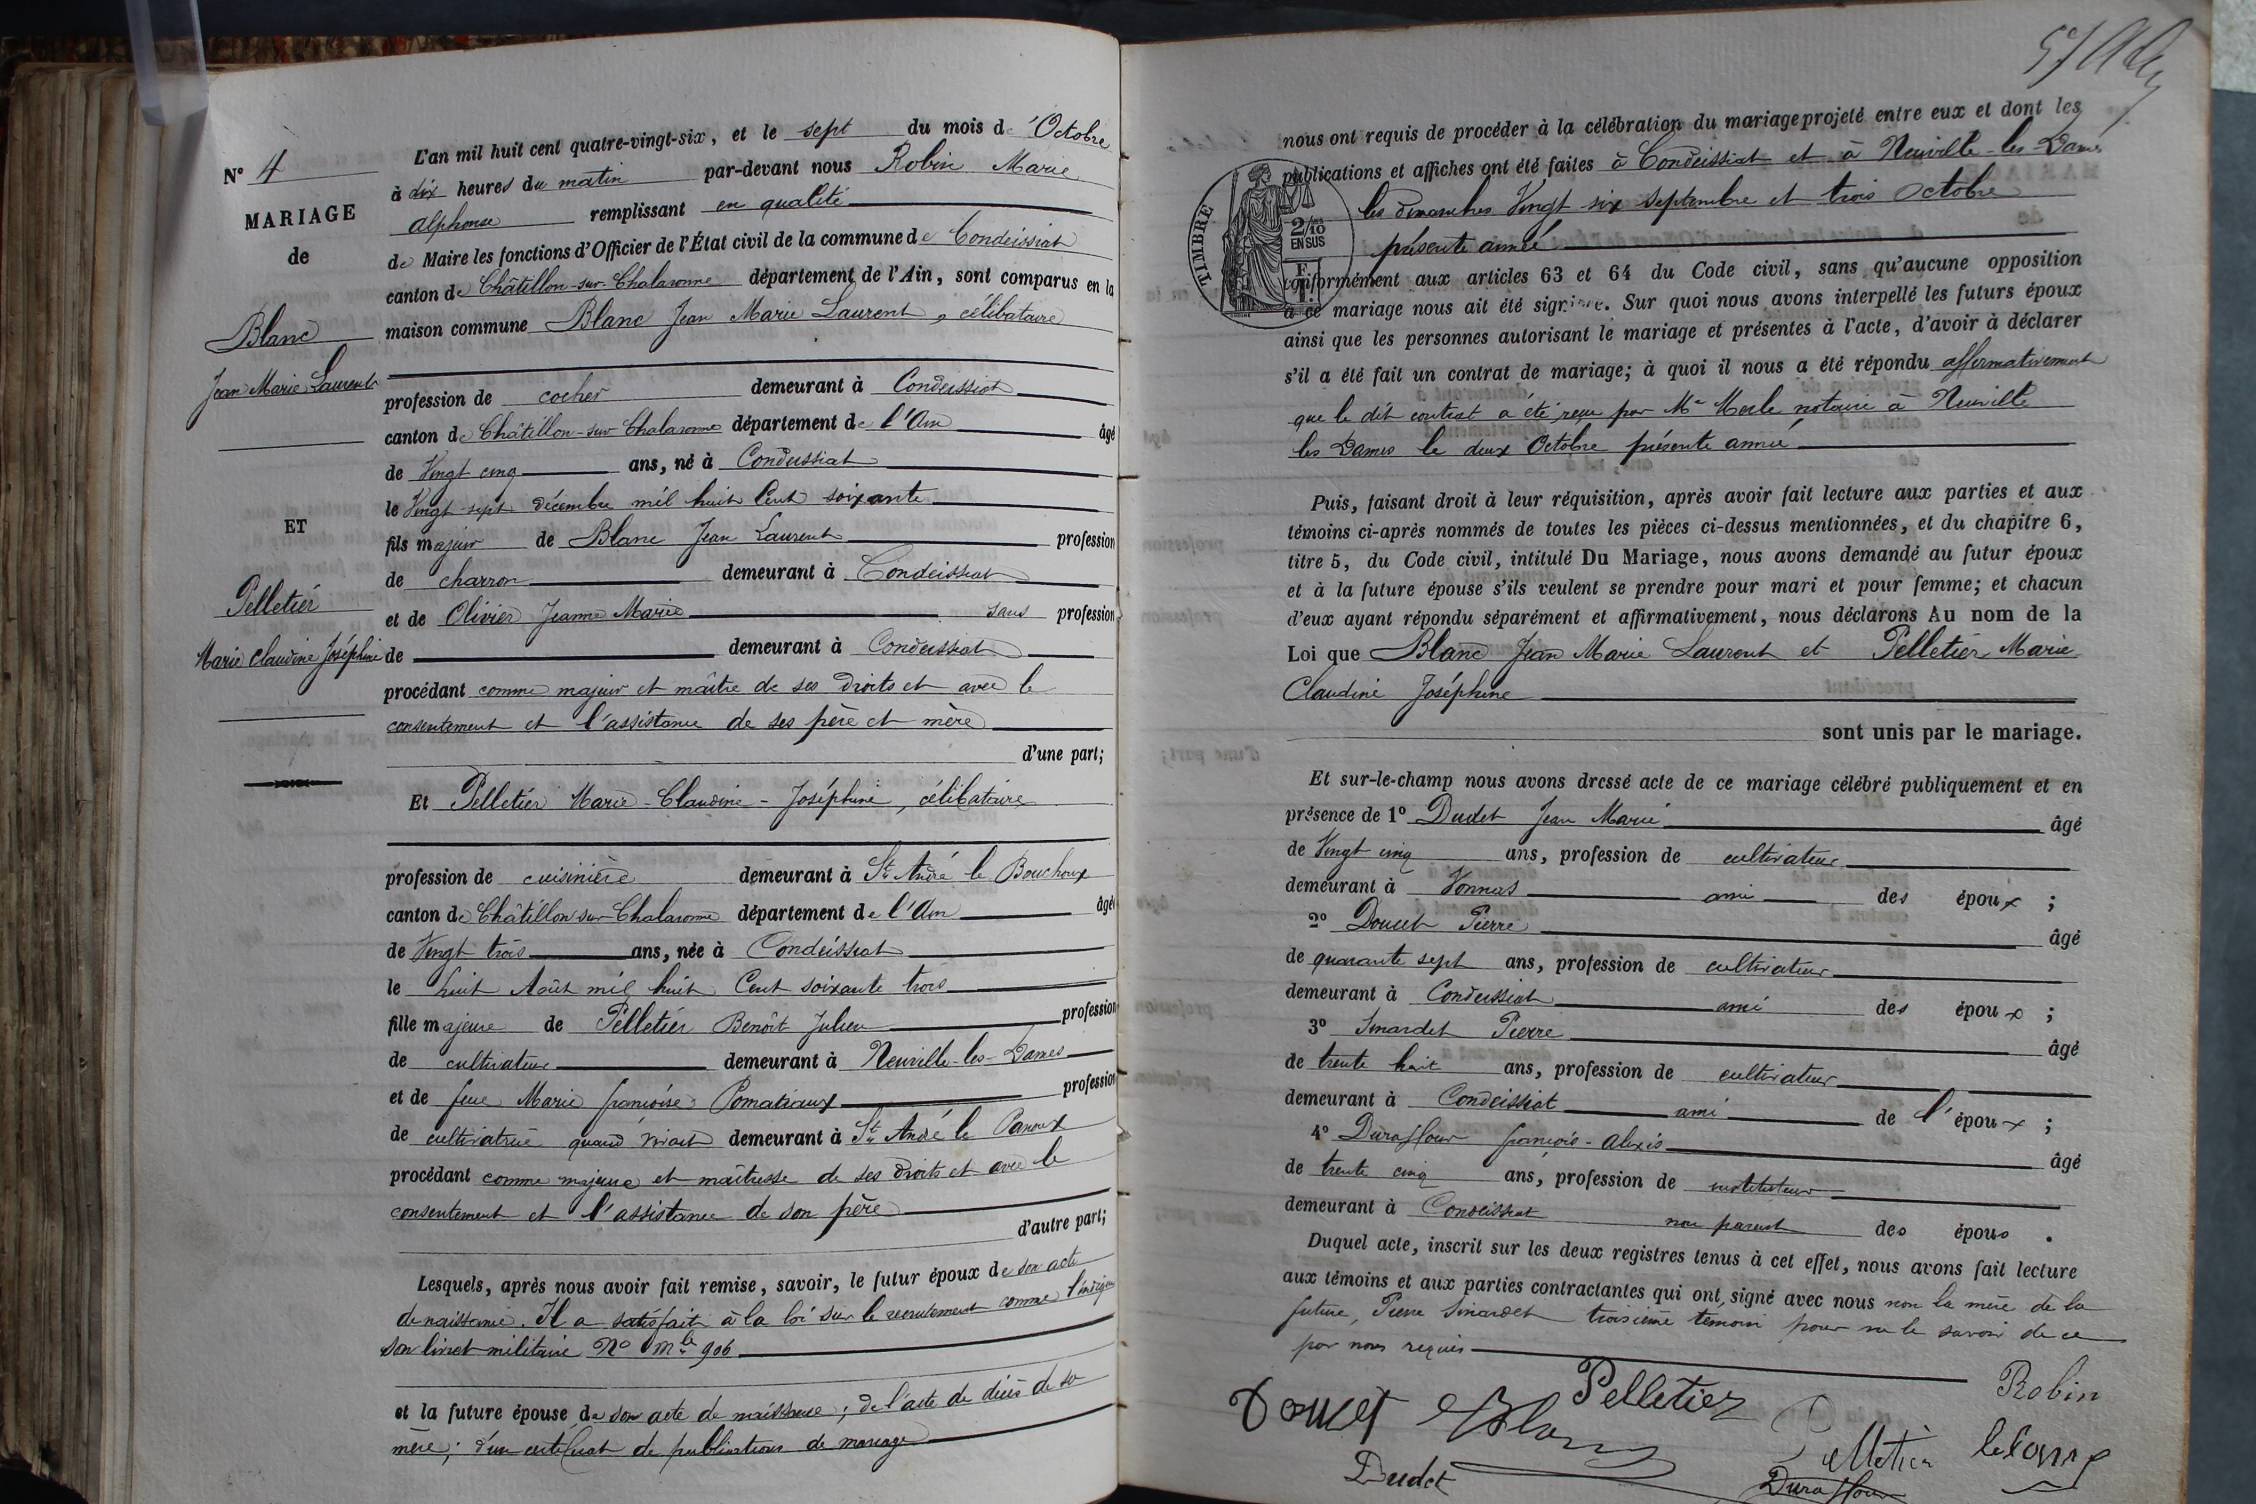 N° 4
MARIAGE
de
Blanc
Jean Marie Laurent
ET
Pelletier
Marie Claudine Joséphine
L'an mil huit cent quatre-vingt-six, et le sept du mois d'Octobre
à dix heures du matin par-devant nous Robin Marie
alphonse remplissant en qualité
de Maire les fonctions d'Officier de l'État civil de la commune de Condeissiat
canton de Châtillon-sur-Chalaronne département de l'Ain, sont comparus en la
maison commune Blanc Jean Marie Laurent, célibataire
profession de cocher demeurant à Condeissiat
canton de Châtillon-sur-Chalaronne département de l'Ain âgé
de Vingt cinq ans, né à Condeissiat
le Vingt-sept décembre mil huit Cent soixante
fils majeur de Blanc Jean Laurent profession
de charron demeurant à Condeissiat
et de Olivier Jeanne Marie sans profession
de demeurant à Condeissiat
procédant comme majeur et maître de ses droits et avec le
consentement et l'assistance de ses père et mère
d'une part;
Et Pelletier Marie-Claudine-Joséphine, célibataire
profession de cuisinière demeurant à St André le Bouchoux
canton de Châtillon sur Chalaronne département de l'Ain âgée
de Vingt trois ans, née à Condeissiat
le huit Août mil huit Cent soixante trois
fille majeure de Pelletier Benoît Julien profession
de cultivateur demeurant à Neuville-les-Dames
et de feue Marie françoise Pomatiaux profession
de cultivatrice quand vivait demeurant à St André le Panoux
procédant comme majeure et maîtresse de ses droits et avec le
consentement et l'assistance de son père
d'autre part;
Lesquels, après nous avoir fait remise, savoir, le futur époux de son acte
de naissance. Il a satisfait à la loi sur le recrutement comme l'indique
son livret militaire N° Mle 906
et la future épouse de son acte de naissance; de l'acte de décès de sa
mère; d'un certificat de publications de mariage
nous ont requis de procéder à la célébration du mariage projeté entre eux et dont les
publications et affiches ont été faites à Condeissiat et à Neuville-les-Dames
les dimanches Vingt six septembre et trois Octobre
présente année
TIMBRE
2/10
EN SUS
conformément aux articles 63 et 64 du Code civil, sans qu'aucune opposition
à ce mariage nous ait été signifiée. Sur quoi nous avons interpellé les futurs époux
ainsi que les personnes autorisant le mariage et présentes à l'acte, d'avoir à déclarer
s'il a été fait un contrat de mariage; à quoi il nous a été répondu affirmativement
que le dit contrat a été reçu par Me Merle notaire à Neuville
les Dames le deux Octobre présente année
Puis, faisant droit à leur réquisition, après avoir fait lecture aux parties et aux
témoins ci-après nommés de toutes les pièces ci-dessus mentionnées, et du chapitre 6,
titre 5, du Code civil, intitulé Du Mariage, nous avons demandé au futur époux
et à la future épouse s'ils veulent se prendre pour mari et pour femme; et chacun
d'eux ayant répondu séparément et affirmativement, nous déclarons Au nom de la
Loi que Blanc Jean Marie Laurent et Pelletier Marie
Claudine Joséphine
sont unis par le mariage.
Et sur-le-champ nous avons dressé acte de ce mariage célébré publiquement et en
présence de 1° Dudet Jean Marie âgé
de Vingt cinq ans, profession de cultivateur
demeurant à Vonnas ami des époux;
2° Doucet Pierre âgé
de quarante sept ans, profession de cultivateur
demeurant à Condeissiat ami des époux;
3° Sinardet Pierre âgé
de trente huit ans, profession de cultivateur
demeurant à Condeissiat ami de l'époux;
4° Duraffour françois-alexis âgé
de trente cinq ans, profession de instituteur
demeurant à Condeissiat non parent des époux.
Duquel acte, inscrit sur les deux registres tenus à cet effet, nous avons fait lecture
aux témoins et aux parties contractantes qui ont signé avec nous non la mère de la
future, Pierre Sinardet troisième témoin pour ne le savoir de ce
par nous requis
Doucet Blanc Pelletier Robin
Dudet Pelletier Duraffour